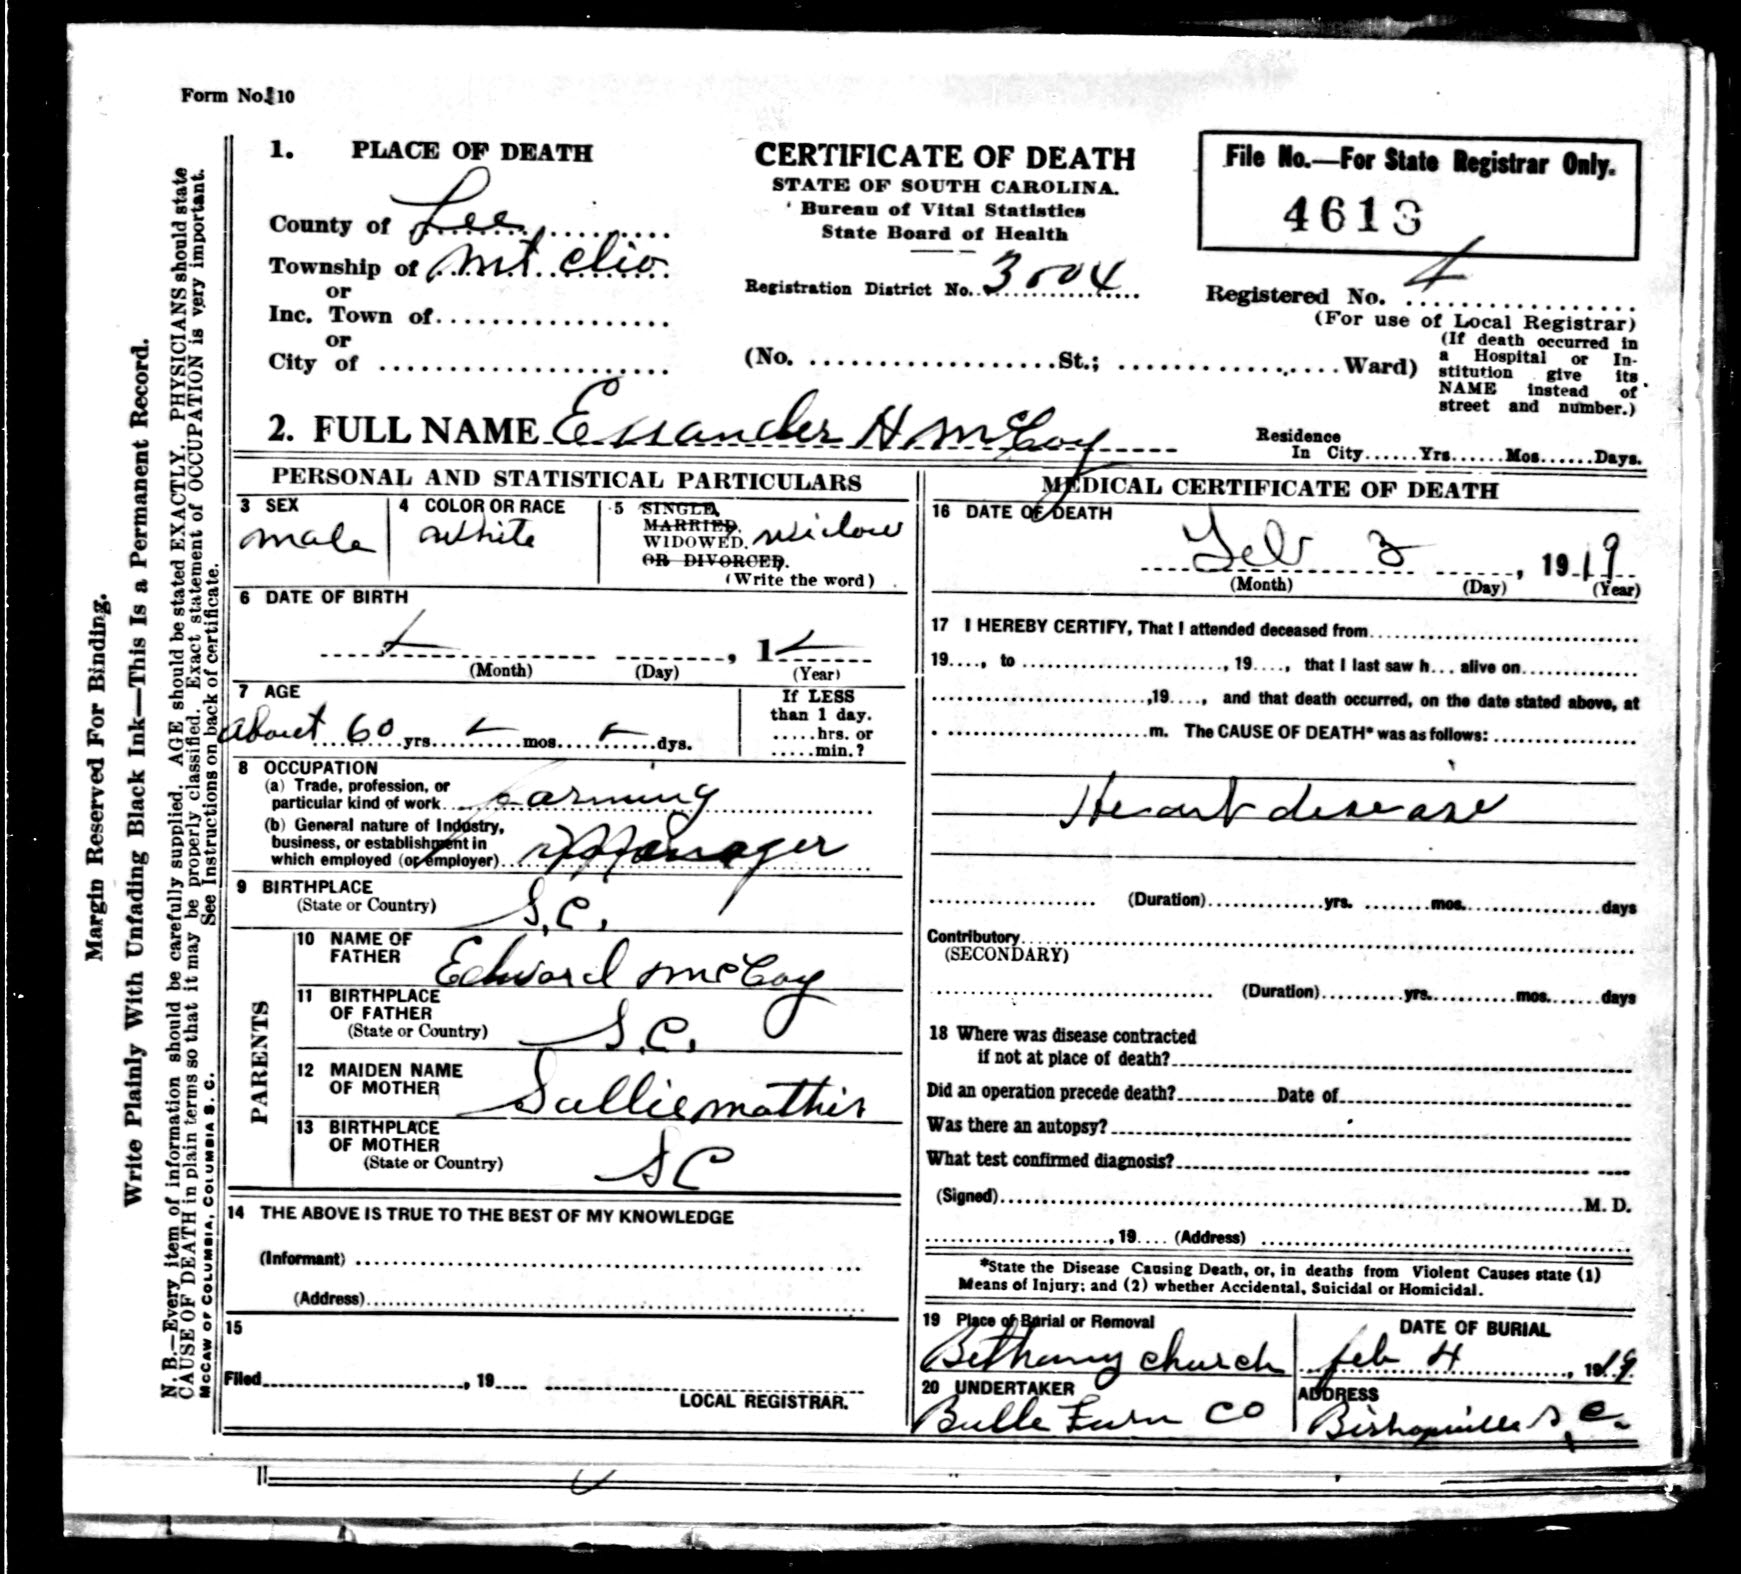 Form No. 10
1. PLACE OF DEATH
County of Lee
Township of Mt. Clio
or
Inc. Town of
or
City of
CERTIFICATE OF DEATH
STATE OF SOUTH CAROLINA.
Bureau of Vital Statistics
State Board of Health
Registration District No. 3004
(No. St.; Ward)
File No.—For State Registrar Only.
4613
Registered No.
(For use of Local Registrar)
(If death occurred in
a Hospital or In-
stitution give its
NAME instead of
street and number.)
2. FULL NAME H McCoy
Residence
In City Yrs. Mos. Days.
PERSONAL AND STATISTICAL PARTICULARS
3 SEX
male
4 COLOR OR RACE
White
5 SINGLE,
MARRIED,
WIDOWED,
OR DIVORCED.
(Write the word)
widow
6 DATE OF BIRTH
, 1
(Month) (Day) (Year)
7 AGE
about 60 yrs. mos. dys.
If LESS
than 1 day.
hrs. or
min.?
8 OCCUPATION
(a) Trade, profession, or
particular kind of work farming
(b) General nature of Industry,
business, or establishment in
which employed (or employer) Manager
9 BIRTHPLACE
(State or Country) S.C.
PARENTS
10 NAME OF
FATHER Edward McCoy
11 BIRTHPLACE
OF FATHER
(State or Country) S.C.
12 MAIDEN NAME
OF MOTHER Sallie mathis
13 BIRTHPLACE
OF MOTHER
(State or Country) SC
14 THE ABOVE IS TRUE TO THE BEST OF MY KNOWLEDGE
(Informant)
(Address)
15
Filed , 19
LOCAL REGISTRAR.
MEDICAL CERTIFICATE OF DEATH
16 DATE OF DEATH
Feb 3, 1919
(Month) (Day) (Year)
17 I HEREBY CERTIFY, That I attended deceased from
19...., to , 19...., that I last saw h... alive on
,19...., and that death occurred, on the date stated above, at
m. The CAUSE OF DEATH* was as follows:
Heart disease
(Duration) yrs. mos. days
Contributory
(SECONDARY)
(Duration) yrs. mos. days
18 Where was disease contracted
if not at place of death?
Did an operation precede death? Date of
Was there an autopsy?
What test confirmed diagnosis?
(Signed) M. D.
, 19.... (Address)
*State the Disease Causing Death, or, in deaths from Violent Causes state (1)
Means of Injury; and (2) whether Accidental, Suicidal or Homicidal.
19 Place of Burial or Removal
Bethany church
DATE OF BURIAL
feb 4, 1919
20 UNDERTAKER
Furn CO
ADDRESS
Bishopville S,C.
Margin Reserved For Binding.
Write Plainly With Unfading Black Ink—This Is a Permanent Record.
N. B.—Every item of information should be carefully supplied. AGE should be stated EXACTLY. PHYSICIANS should state
CAUSE OF DEATH in plain terms so that it may be properly classified. Exact statement of OCCUPATION is very important.
See Instructions on back of certificate.
McCAW OF COLUMBIA, COLUMBIA S. C.